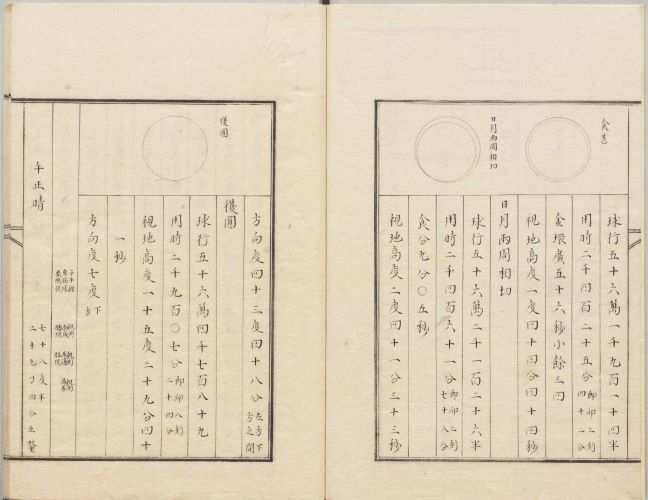 食甚
球行五十六萬一千九百一十四半
用時二千四百二十五分卯卯二刻四十一分
金環廣五十六秒小餘三四
視地高度一度四十四分四十四秒
日月兩周相切
日月兩周相切
球行五十六萬二千一百二十六半
用時二千四百六十一分卯卯二刻七十八分
食分九分〇五秒
視地高度二度四十一分三十三秒
方向度四十三度四十八分左方下方之間
復圓
復圓
球行五十六萬四千七百八十九
用時二千九百〇七分卯卯八刻二十四分
視地高度一十五度二十九分四十
一秒
方向度七度下方
午正晴
七十八度半
二十九寸四分五釐